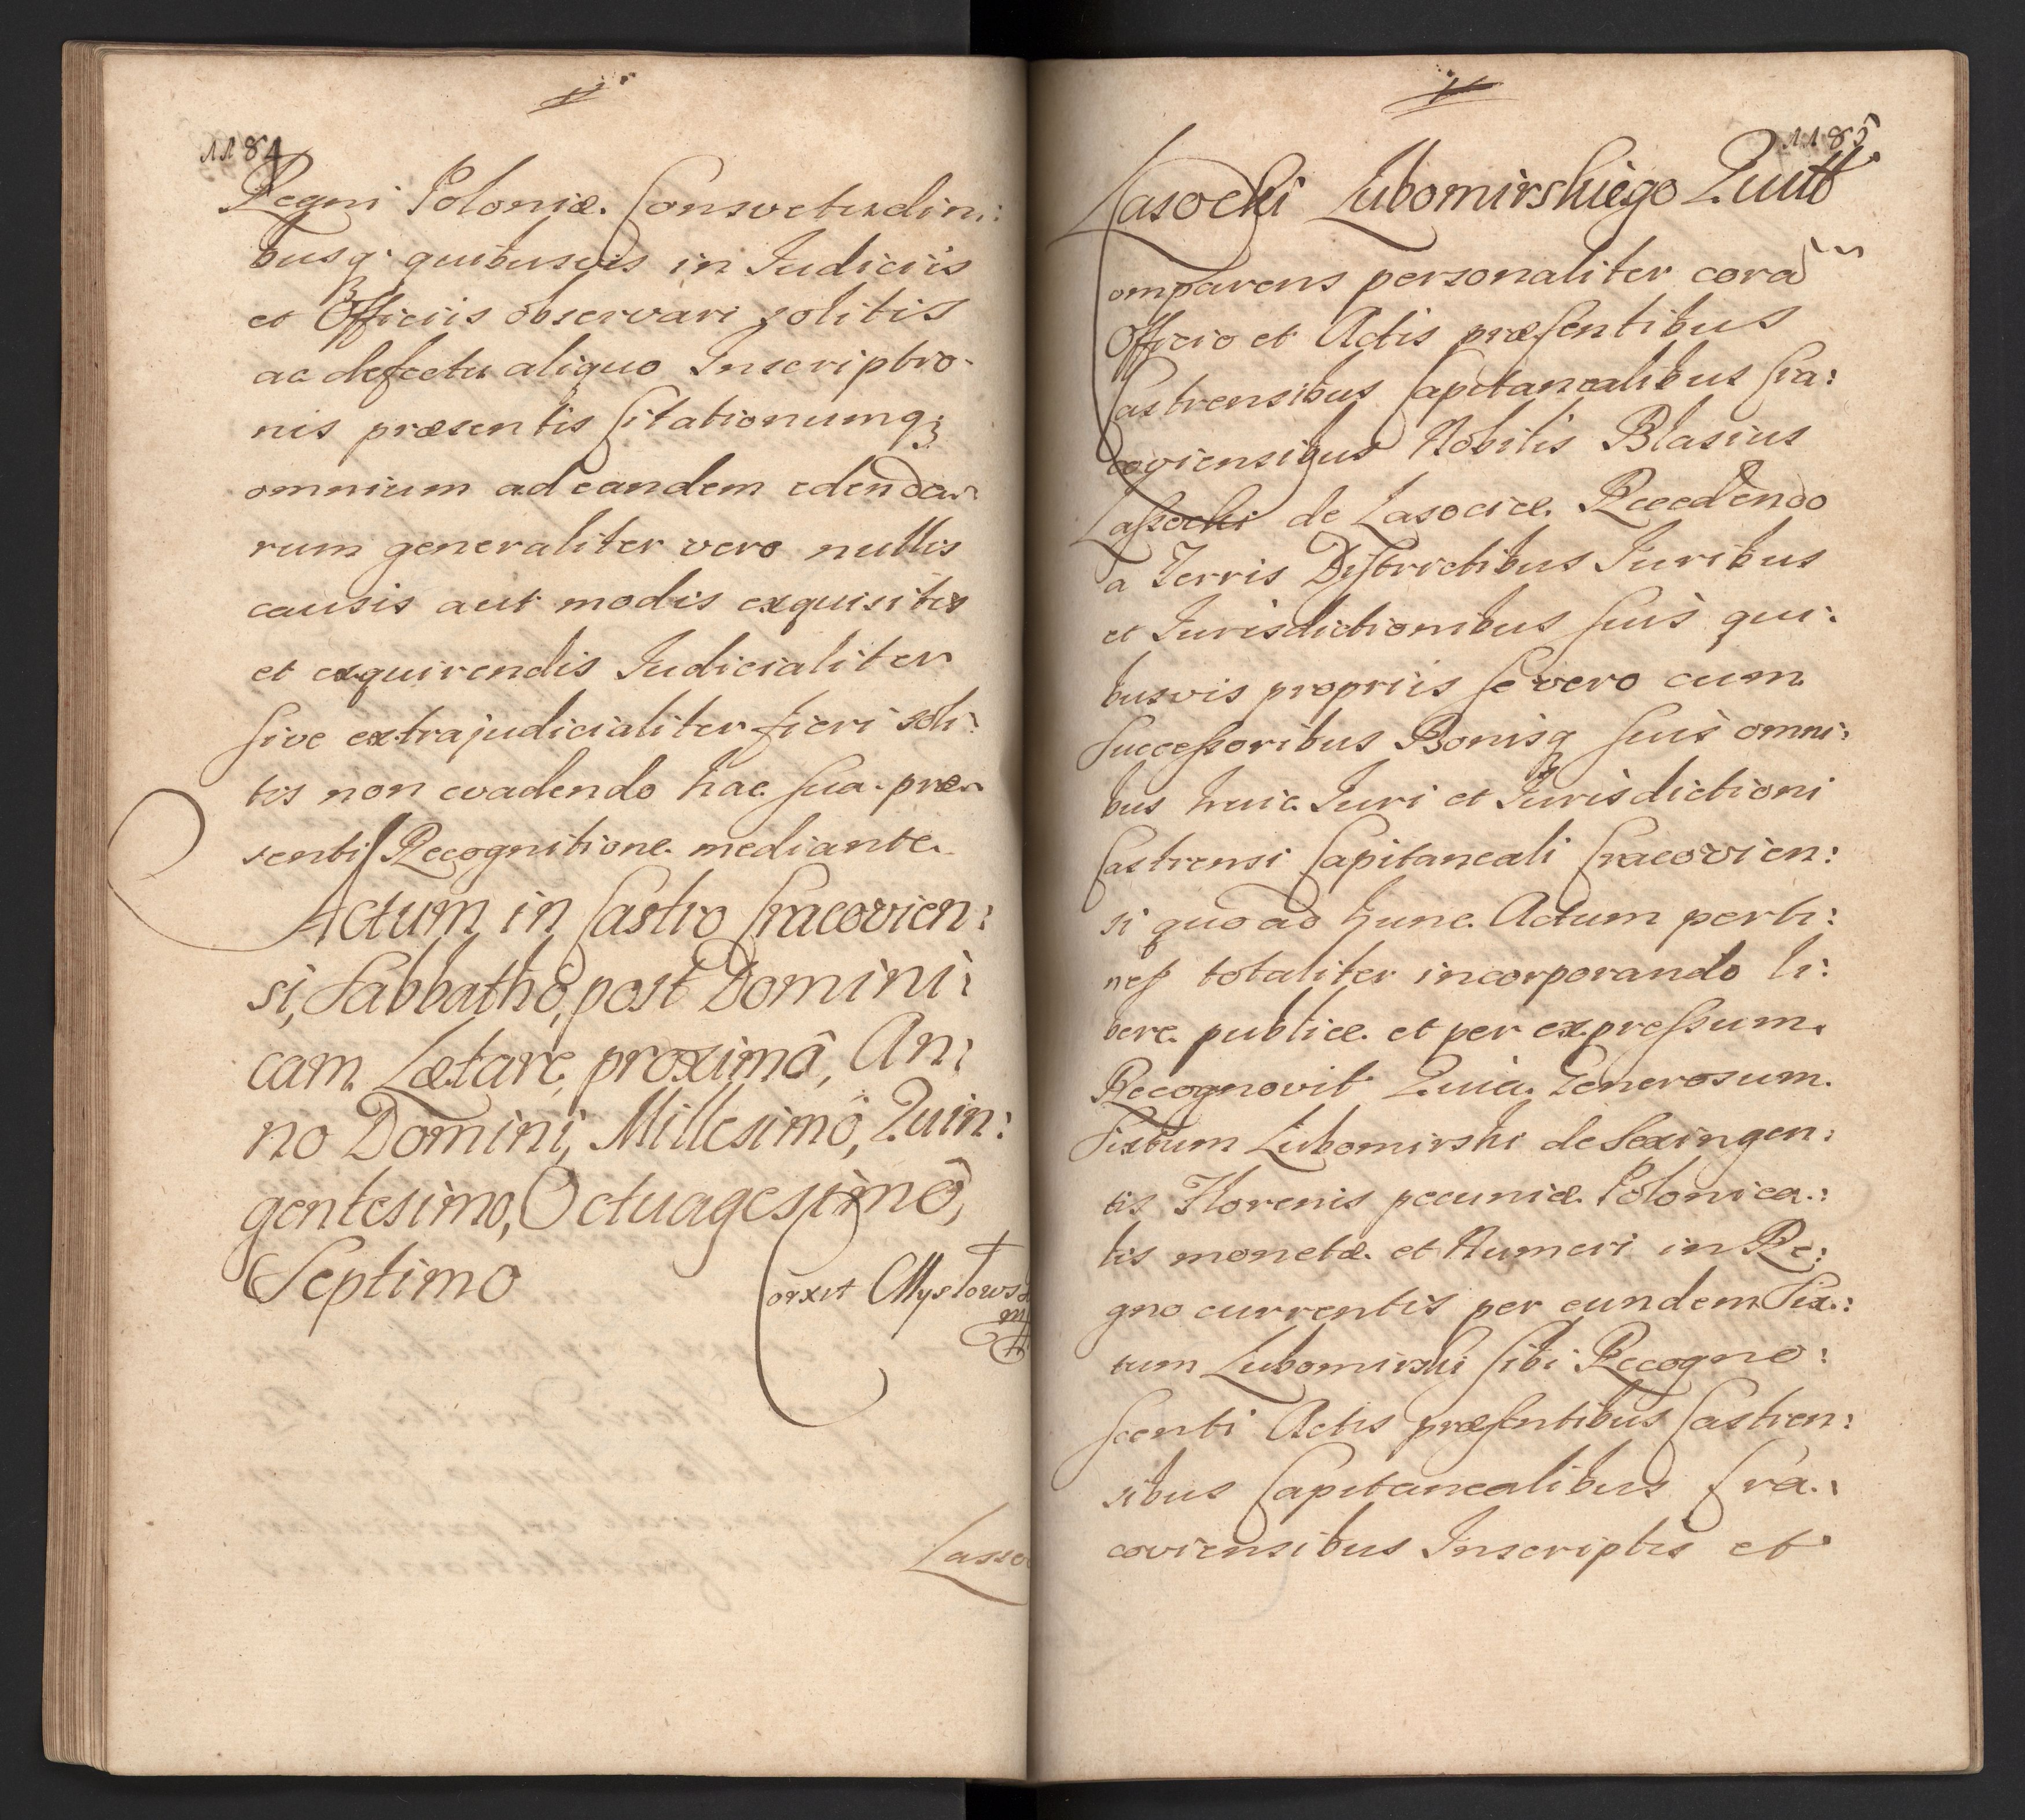 1184
Regni Poloniæ. Consvetudini:
busq; quibusvis in Judiciis
et Officiis observari solitis
ac defectu aliquo Inscriptio-
nis præsentis Citationumq;
omnium ad eandem edenda-
rum generaliter vero nullis
causis aut modis exquisitis
et exquirendis Judicialiter
sive extrajudicialiter fieri soli:
tis non evadendo hac sua præ-
senti Recognitione mediante.
Actum in Castro Cracovien:
si, Sabbathô, post Domini:
cam Lætare, proximô, An:
no Domini, Millesimô, Quin:
gentesimo, Octuagesimô,
Septimo
Corxit Mystows
mp
Lasso
1185
Lasocki Lubomirskiego Quitt
Comparens personaliter corã
Officio et Actis præsentibus
Castrensibus Capitanealibus Cra:
coviensibus Nobilis Blasius
Lassocki de Lasocice. Recedendo
a Terris Districtibus Juribus
et Jurisdictionibus suis qui:
busvis propriis se vero cum
Successoribus Bonisq; suis omni:
bus huic Juri et Jurisdictioni
Castrensi Capitaneali Cracovien:
si quo ad hunc Actum perti:
net totaliter incorporando li:
bere publice. et per expressum.
Recognovit Quia Generosum
Sixtum Lubomirski de Sexingen:
tis Florenis pecuniæ Polonica:
lis monetæ et Numeri in Re:
gno currentis per eundem Six:
tum Lubomirski sibi Recogno:
scenti Actis præsentibus Castren:
sibus Capitanealibus Cra:
coviensibus Inscriptis et